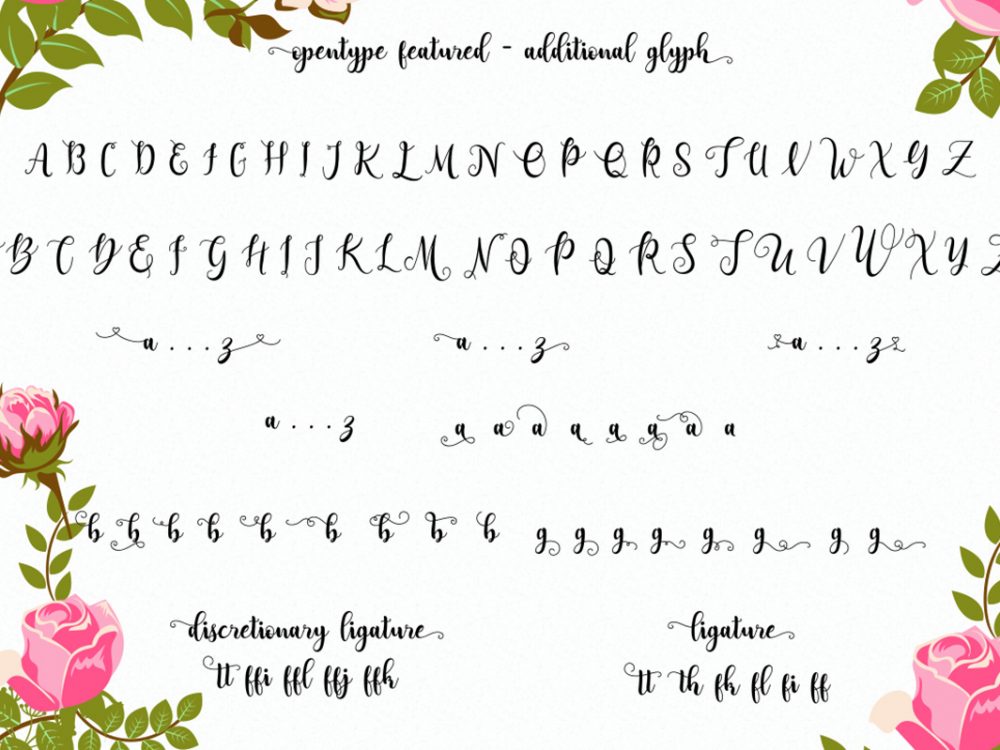 opentype featured - additional glyph
A B C D E F G H I J K L M N O P Q R S T U V W X Y Z
B C D E F G H I J K L M N O P Q R S T U V W X Y Z
a . . . z a . . . z a . . . z
a . . . z a a a a a a a a
b b b b b b b b b g g g g g g g g
discretionary ligature ligature
tt ffi ffl ffj ffk tt th fk fl fi ff